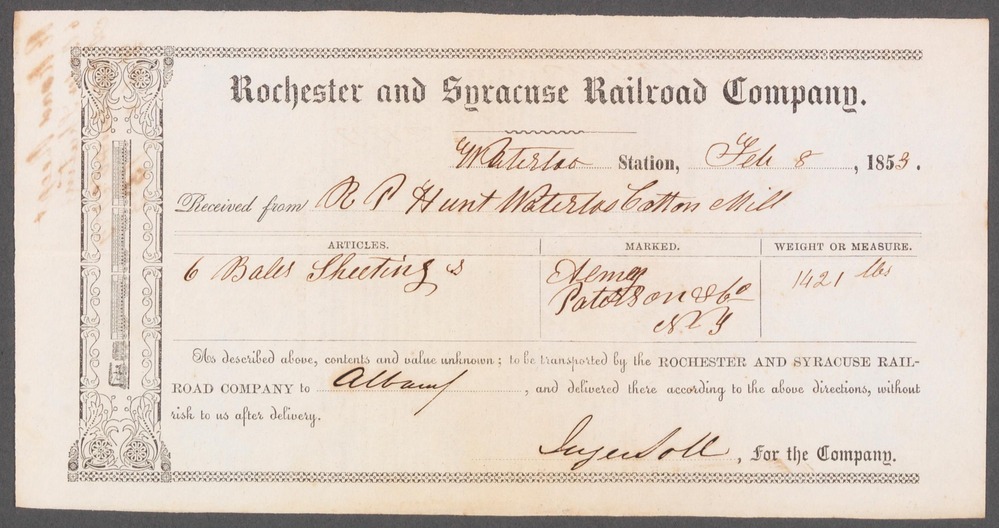 Rochester and Syracuse Railroad Company.
Waterloo Station, Feb 8, 1853.
Received from R P Hunt Waterloo Cotton Mill
ARTICLES. MARKED. WEIGHT OR MEASURE.
6 Bales Sheetings Almy 1421 lbs
Paterson & Co
N Y
As described above, contents and value unknown; to be transported by the ROCHESTER AND SYRACUSE RAIL-
ROAD COMPANY to Albany, and delivered there according to the above directions, without
risk to us after delivery.
Ingersoll, For the Company.